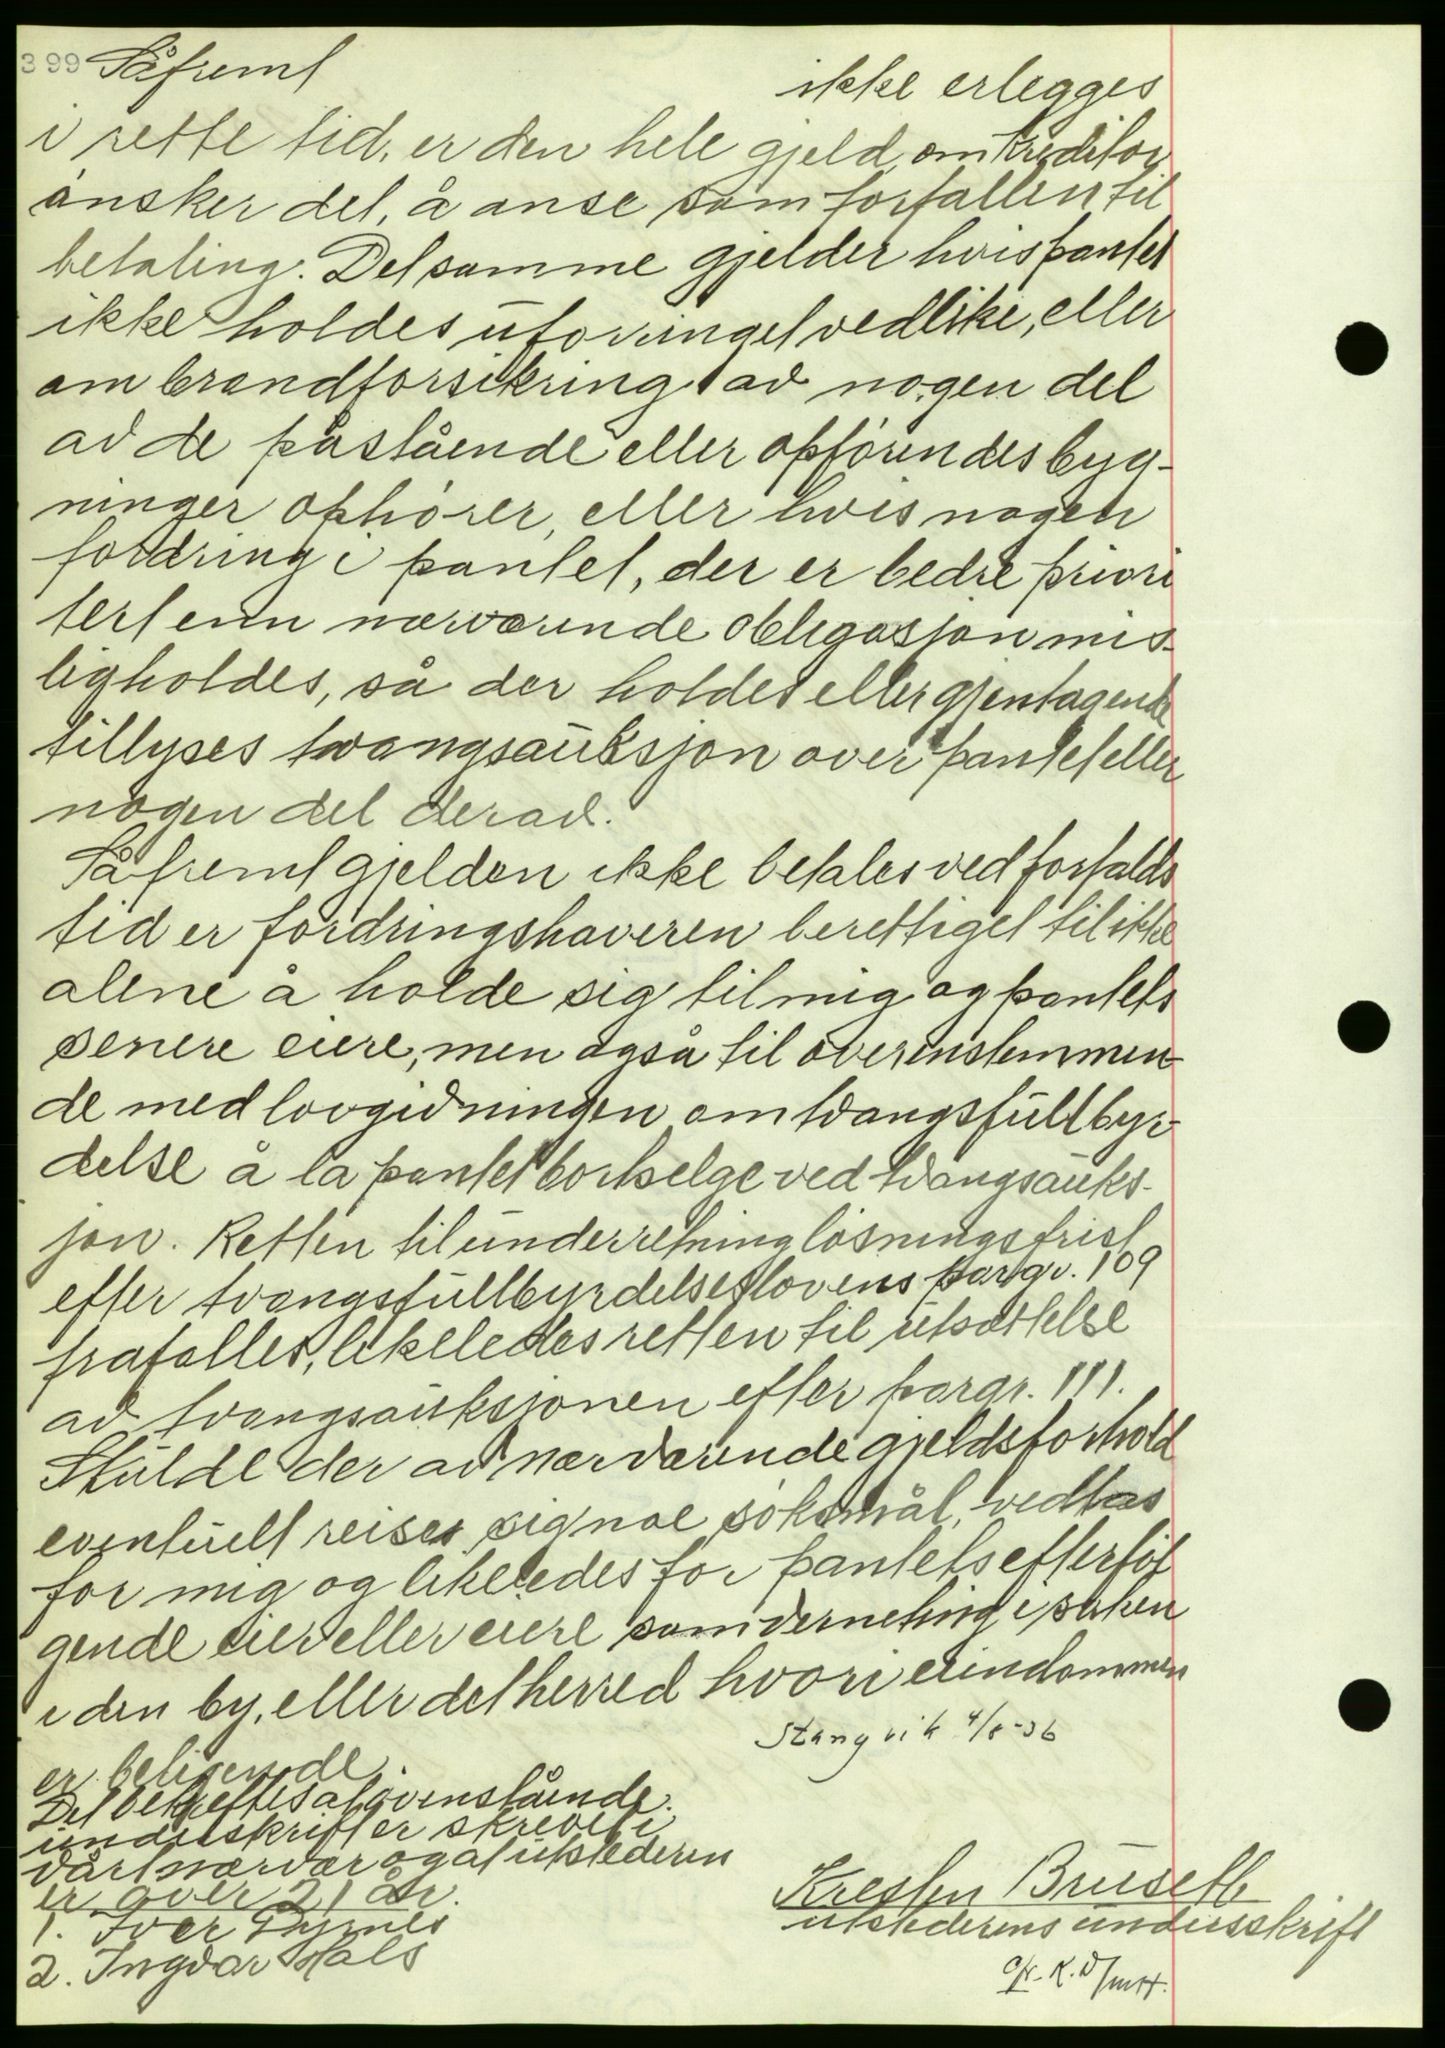 399 Såfremt ikke erlegges
i rette tid, er den hele gjeld, om kreditor
ønsker det, å anse som forfallen til
betaling. Det samme gjelder hvis pantet
ikke holdes uforringet vedlike, eller
om brandforsikring av nogen del
av de påstående eller opførendes byg-
ninger ophører, eller hvis nogen
fordring i pantet, der er bedre priori
tert enn nærværende obligasjon mis-
ligholdes, så der holdes eller gjentagende
tillyses tvangsauksjon over pantet eller
nogen del derav.
Såfremt gjelden ikke betales ved forfalds
tid er fordringshaveren berettiget til ikke
alene å holde sig til mig og pantets
senere eiere, men også til overenstemmen-
de med lovgivningen om tvangsfullbyr-
delse å la pantet bortselge ved tvangsauks-
jon. Retten til underretning løsningsfrist
efter tvangsfullbyrdelseslovens pargr. 109
frafalles, likeledes retten til utsættelse
av tvangsauksjonen efter pargr. 111.
Skulde der av nærværende gjeldsforhold
eventuelt reise sig noe søksmål, vedtas
for mig og likeledes for pantets efterføl
gende eier eller eiere som verneting i saken
i den by, eller det herred hvori eiendommen
Stangvik 4/8-36
er beligende.
Det bekreftes at ovenstående
underskrift er skrevet i
vårt nærvær og at utstederen
er over 21 år.
1. Iver Dyrnes
2. Ingvar Hals
Kresten Brusett
utstederens underskrift